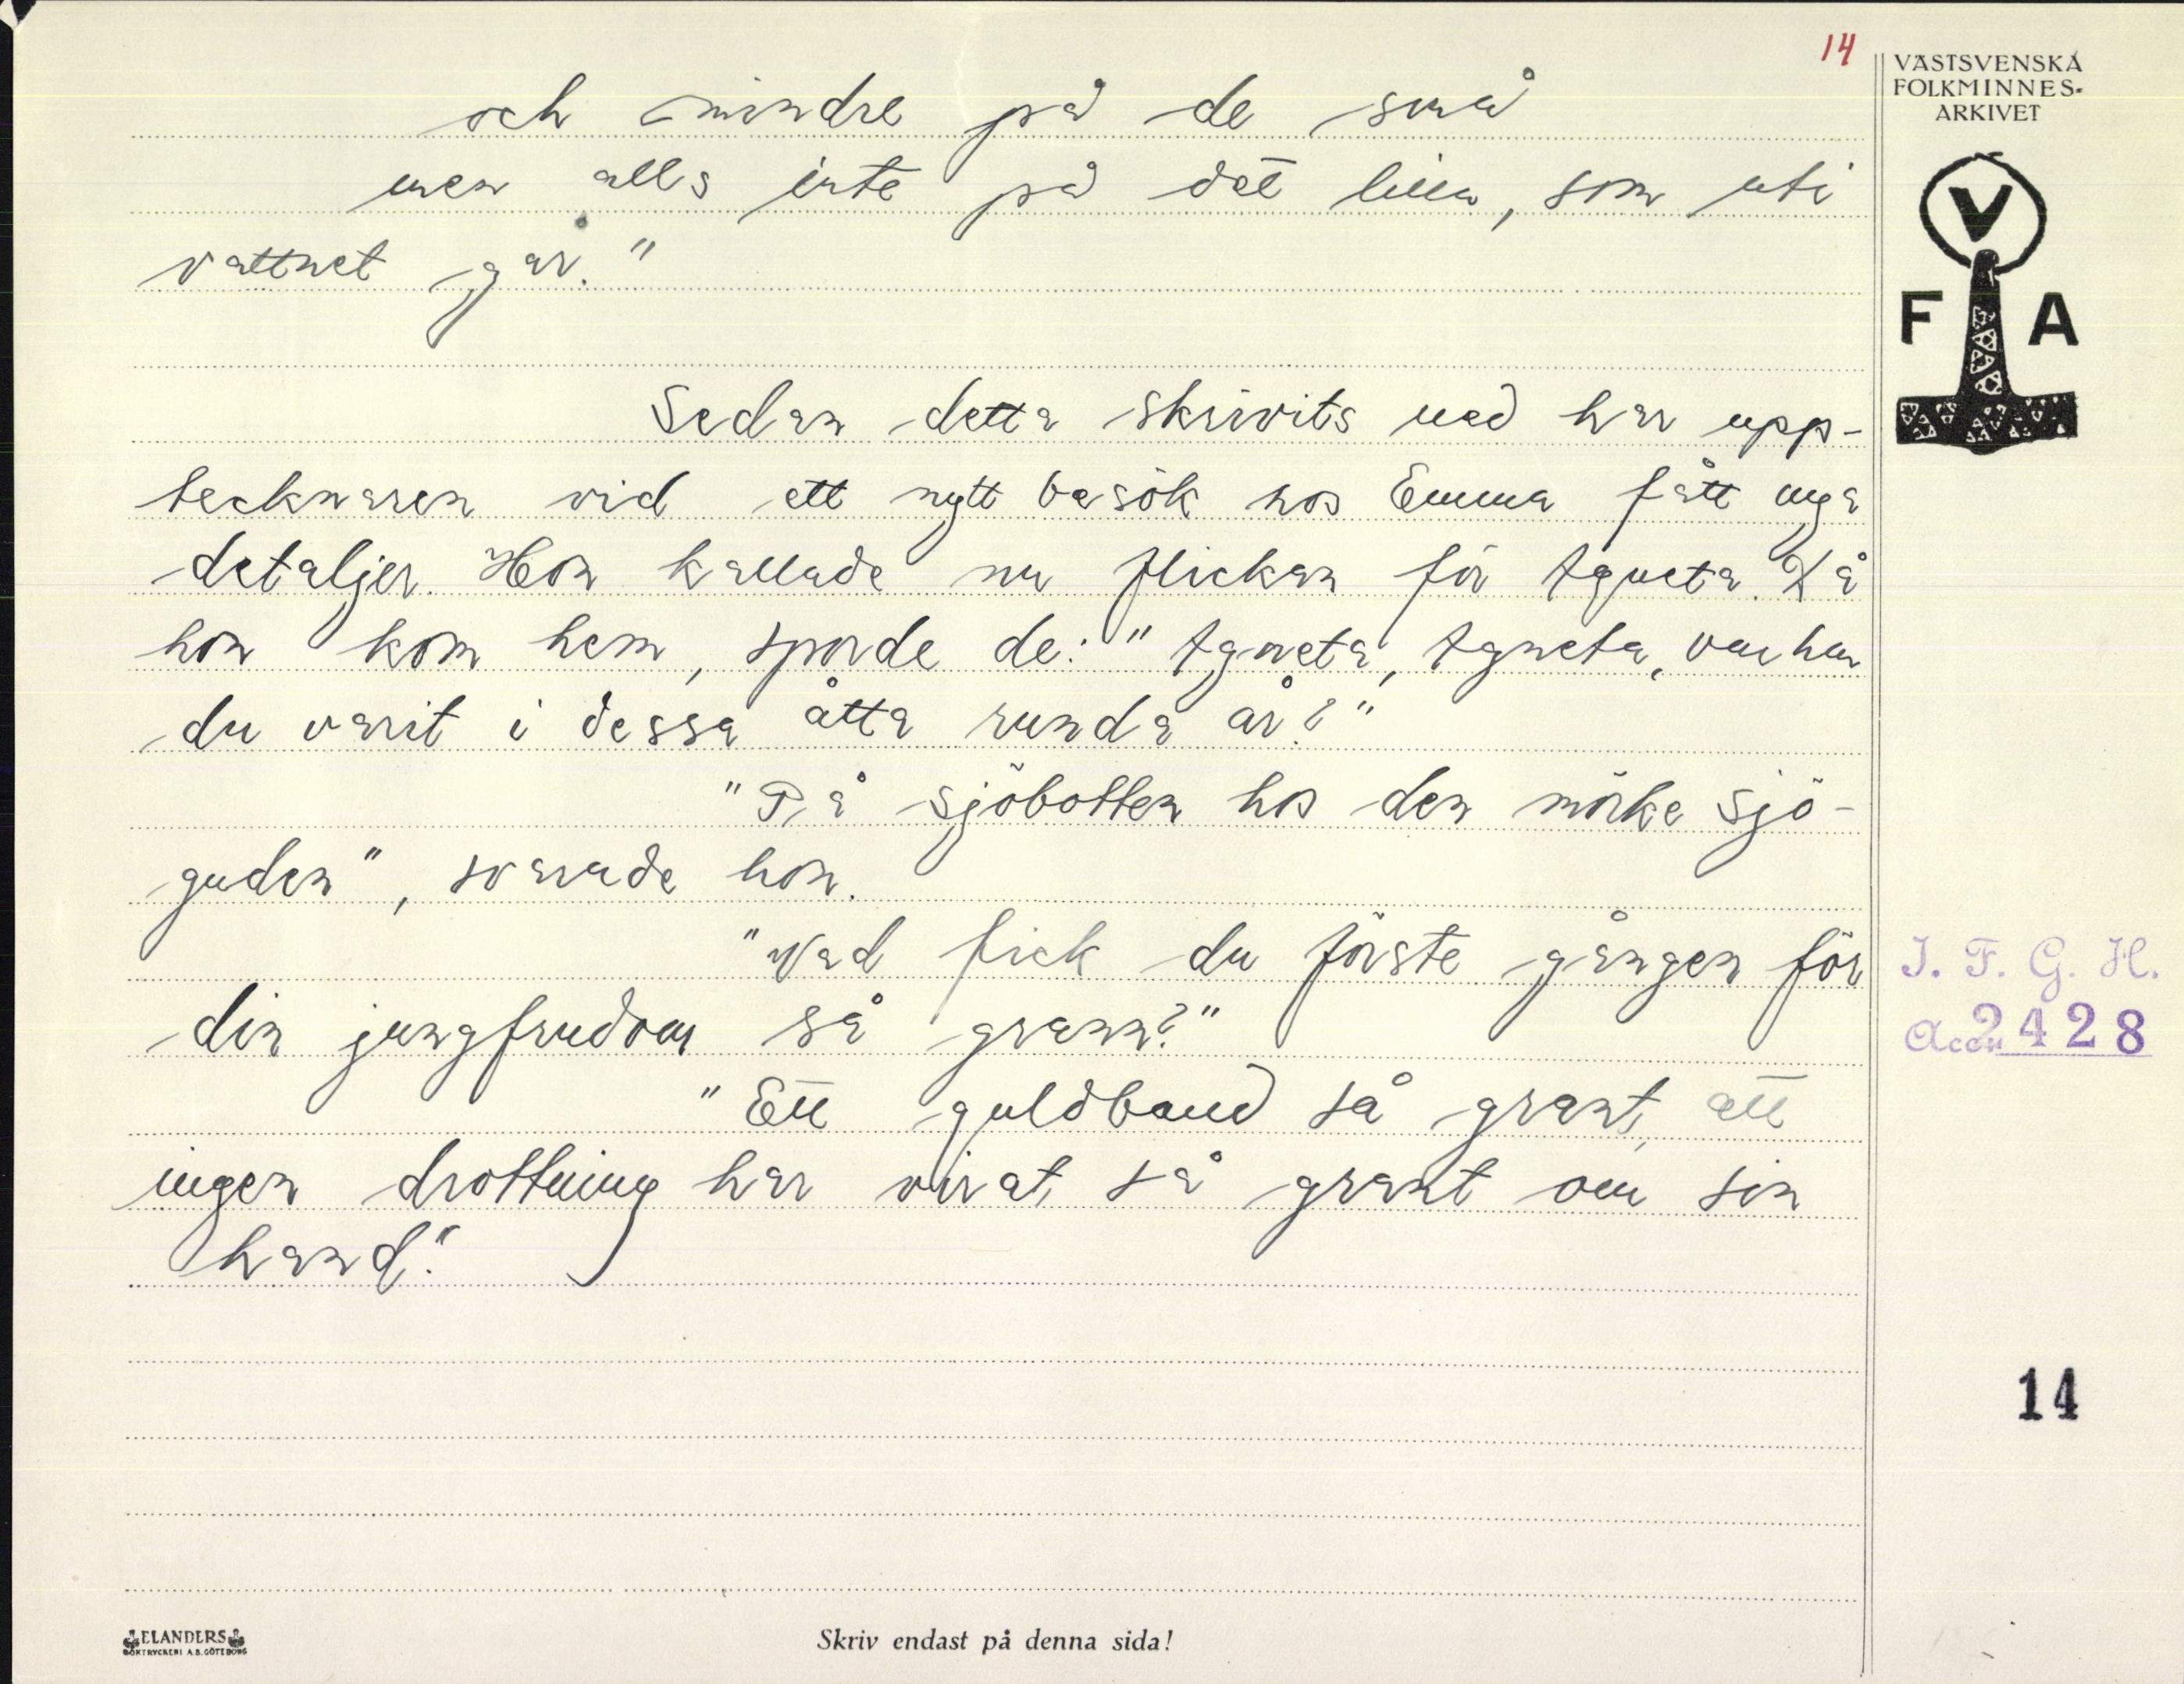 14
VÄSTSVENSKA
FOLKMINNES-
ARKIVET
V
F A
och mindre på de små
men alls inte på det lilla, som uti
vattnet går."
Sedan detta skrivits ned har upp-
tecknaren vid ett nytt besök hos Emma fått nya
detaljer. Hon kallade nu flickan för Agneta. Då
hon kom hem, sporde de: "Agneta, Agneta, var har
du varit i dessa åtta runda år?"
"På sjöbotten hos den mörke sjö-
guden", svarade hon.
"Vad fick du förste gången för
din jungfrudom så grann?"
"Ett guldband så grant, att
ingen drottning har virat så grant om sin
hand."
I. F. G. H.
Accn 2428
14
ELANDERS
BOKTRYCKERI A.B. GÖTEBORG
Skriv endast på denna sida!